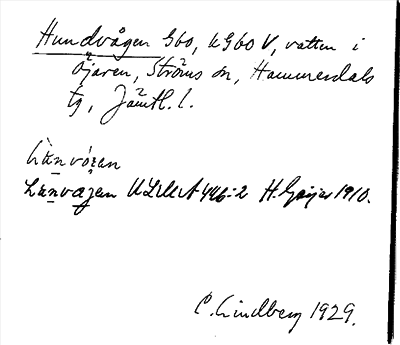 Hundvågen Gbo, kGbo V, vatten i
Öjaren, Ströms sn, Hammerdals
tg, Jämtl. l.
Hànvó̧ʒan
Hanvæʒen ULMA 446:2 H. Geijer 1910.
C. Lindberg 1929.